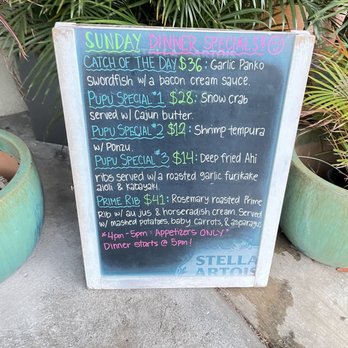 SUNDAY DINNER SPECIALS!
CATCH OF THE DAY $36: Garlic Panko
swordfish w/ a bacon cream sauce.
PUPU SPECIAL #1 $28: Snow crab
served w/ Cajun butter.
PUPU SPECIAL #2 $12: Shrimp tempura
w/ Ponzu.
PUPU SPECIAL #3 $14: Deep fried Ahi
ribs served w/ a roasted garlic furikake
aioli & Kabayaki.
PRIME RIB $41: Rosemary roasted Prime
Rib w/ au jus & horseradish cream. Served
w/ mashed potatoes, baby Carrots, & asparagus
*4pm - 5pm: Appetizers ONLY*
Dinner starts @ 5pm!
STELLA
ARTOIS